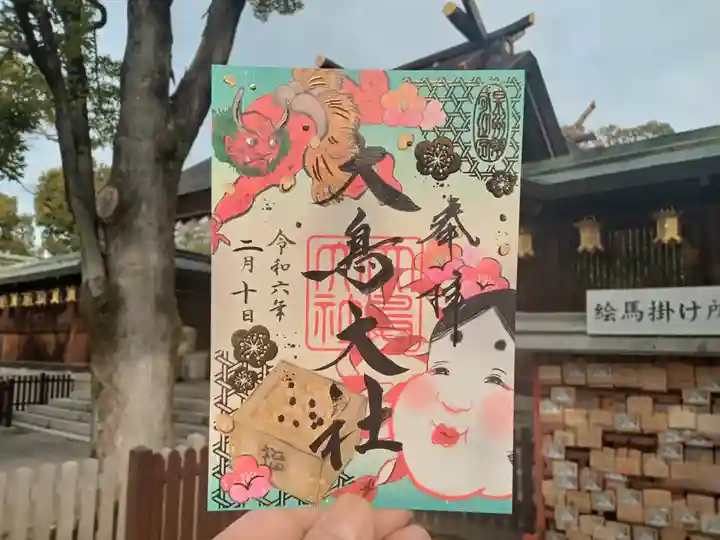 奉拝
大鳥大社
令和六年
二月十日
福
絵馬掛け所